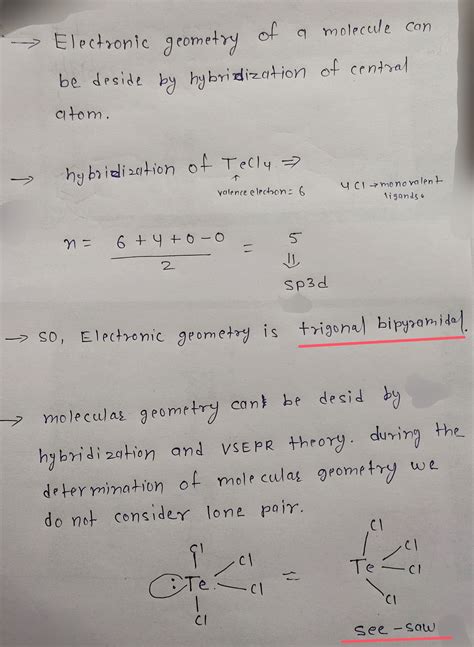 → Electronic geometry of a molecule can
be deside by hybridization of central
atom.
→ hybridization of TeCl4 ⇒
↑
valence electron = 6
4 Cl → monovalent
ligands
n = 6 + 4 + 0 - 0 / 2 = 5
⇓
sp3d
→ so, Electronic geometry is trigonal bipyramidal.
→ molecular geometry can be desid by
hybridization and VSEPR theory. during the
determination of molecular geometry we
do not consider lone pair.
Cl
Cl
:Te
Cl
Cl
=
Cl
Cl
Te
Cl
Cl
see-saw